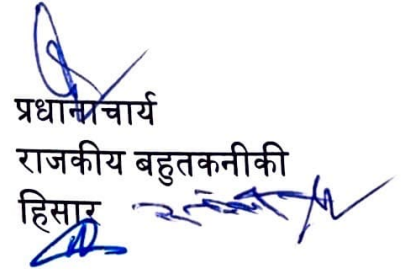 प्रधानाचार्य
राजकीय बहुतकनीकी
हिसार